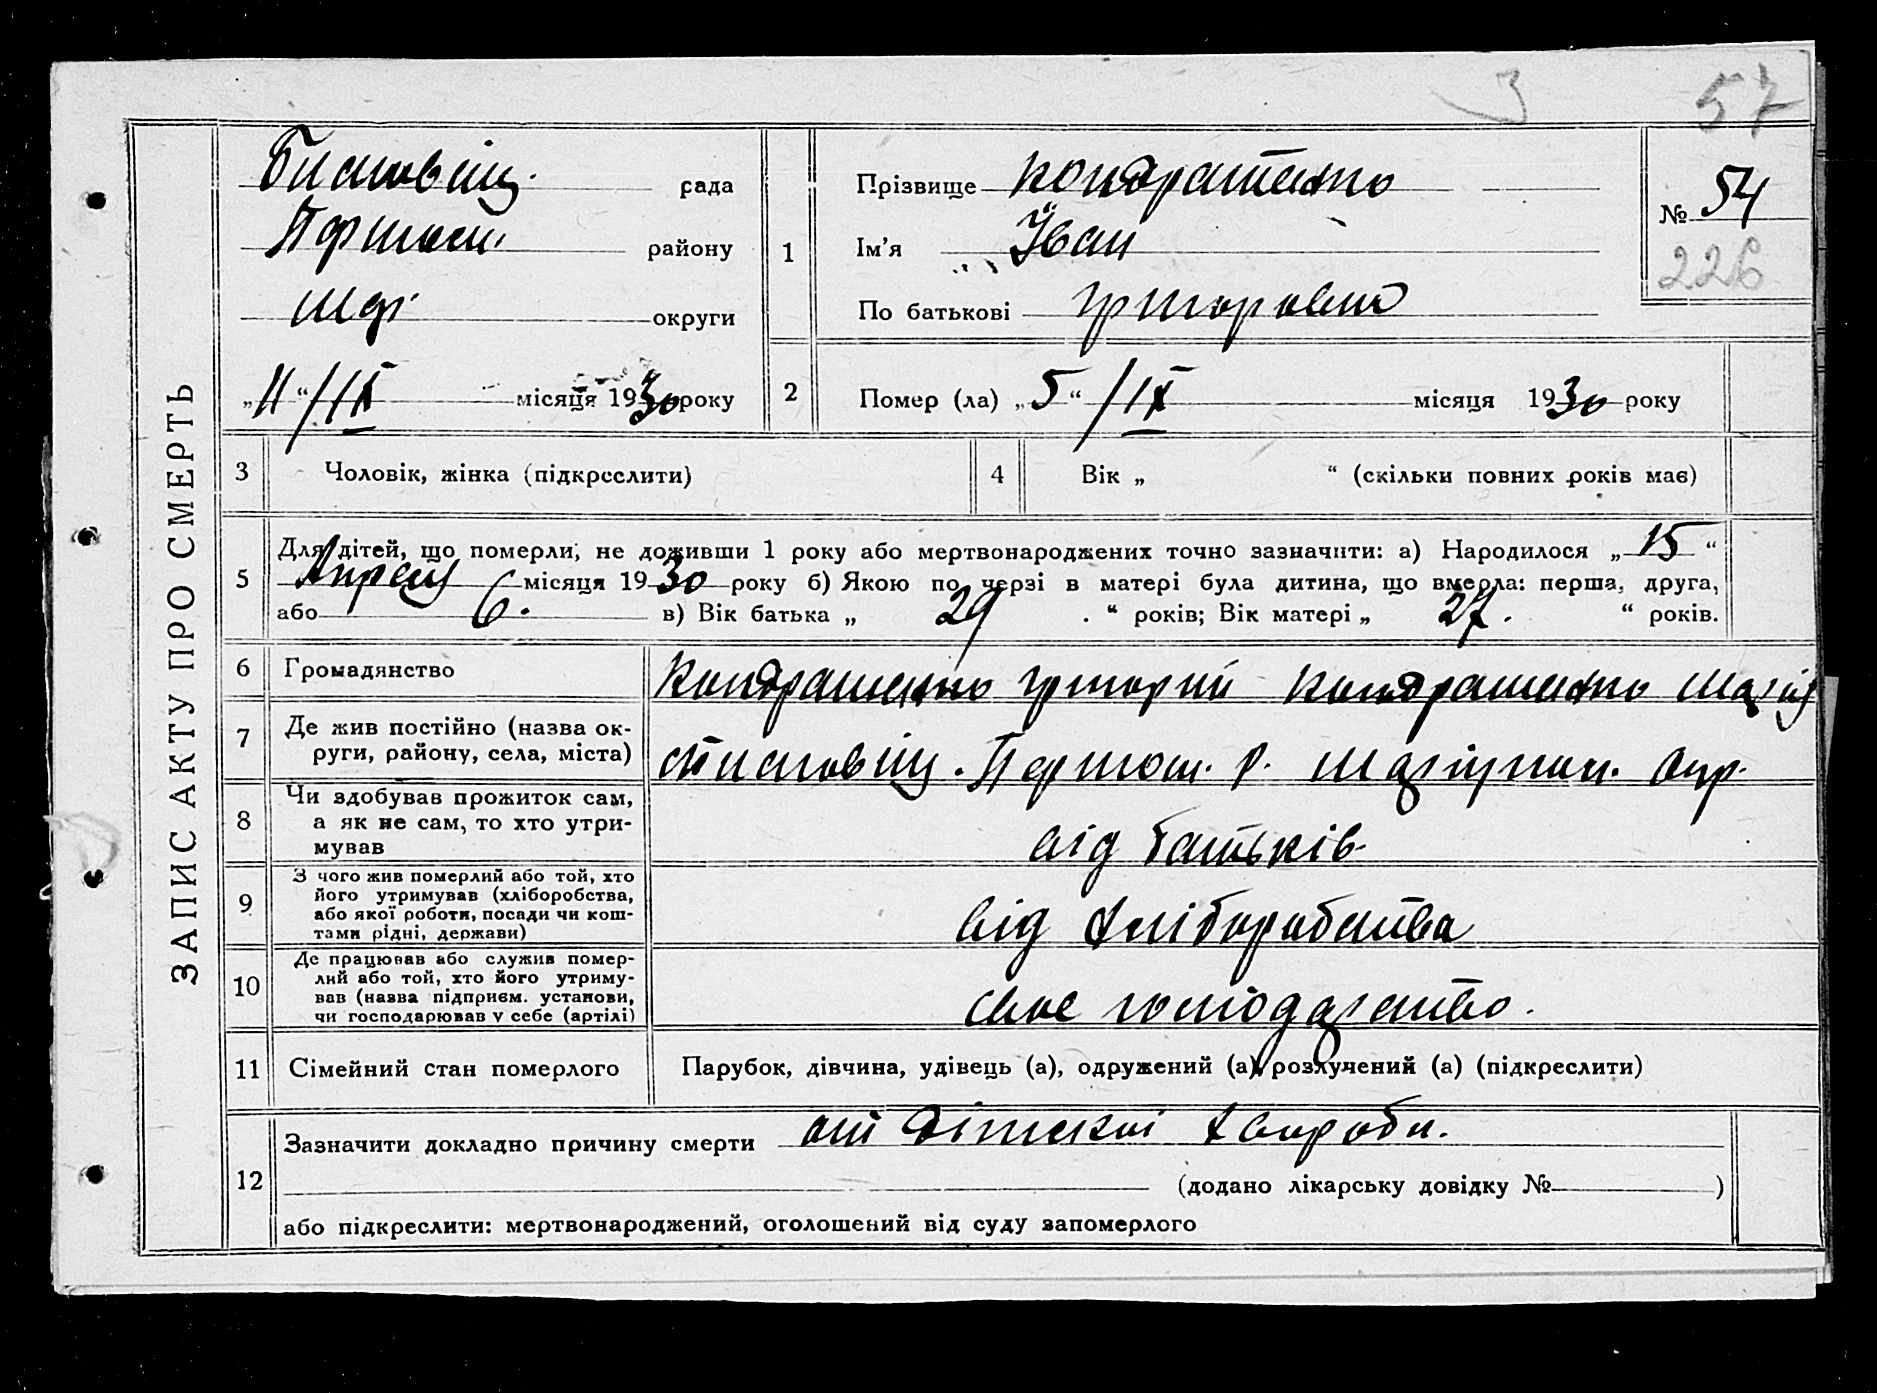 3 57
ЗАПИС АКТУ ПРО СМЕРТЬ
рада
району
округи
„11“/IX місяця 1930 року
1
Прізвище Кондратенко
Ім’я Іван
По батькові Григорович
№ 54
226
2
Помер (ла) „5“/IX місяця 1930 року
3 Чоловік, жінка (підкреслити)
4 Вік „ “ (скільки повних років має)
5
Для дітей, що померли, не доживши 1 року або мертвонароджених точно зазначити: а) Народилося „15“
Апреля місяця 1930 року б) Якою по черзі в матері була дитина, що вмерла: перша, друга,
або 6. в) Вік батька „29.“ років; Вік матері „27.“ років.
6 Громадянство
Кондратенко Григорий Кондратенко
7 Де жив постійно (назва ок-
руги, району, села, міста)
8 Чи здобував прожиток сам,
а як не сам, то хто утри-
мував
від батьків
9 З чого жив померлий або той, хто
його утримував (хліборобства,
або якої роботи, посади чи кош-
тами рідні, держави)
від хліборобства
10 Де працював або служив помер-
лий або той, хто його утриму-
вав (назва підприєм. установи,
чи господарював у себе (артілі)
своє господарство.
11 Сімейний стан померлого
Парубок, дівчина, удівець (а), одружений (а), розлучений (а) (підкреслити)
12
Зазначити докладно причину смерти от дітскої хвороби.
(додано лікарську довідку № )
або підкреслити: мертвонароджений, оголошений від суду запомерлого